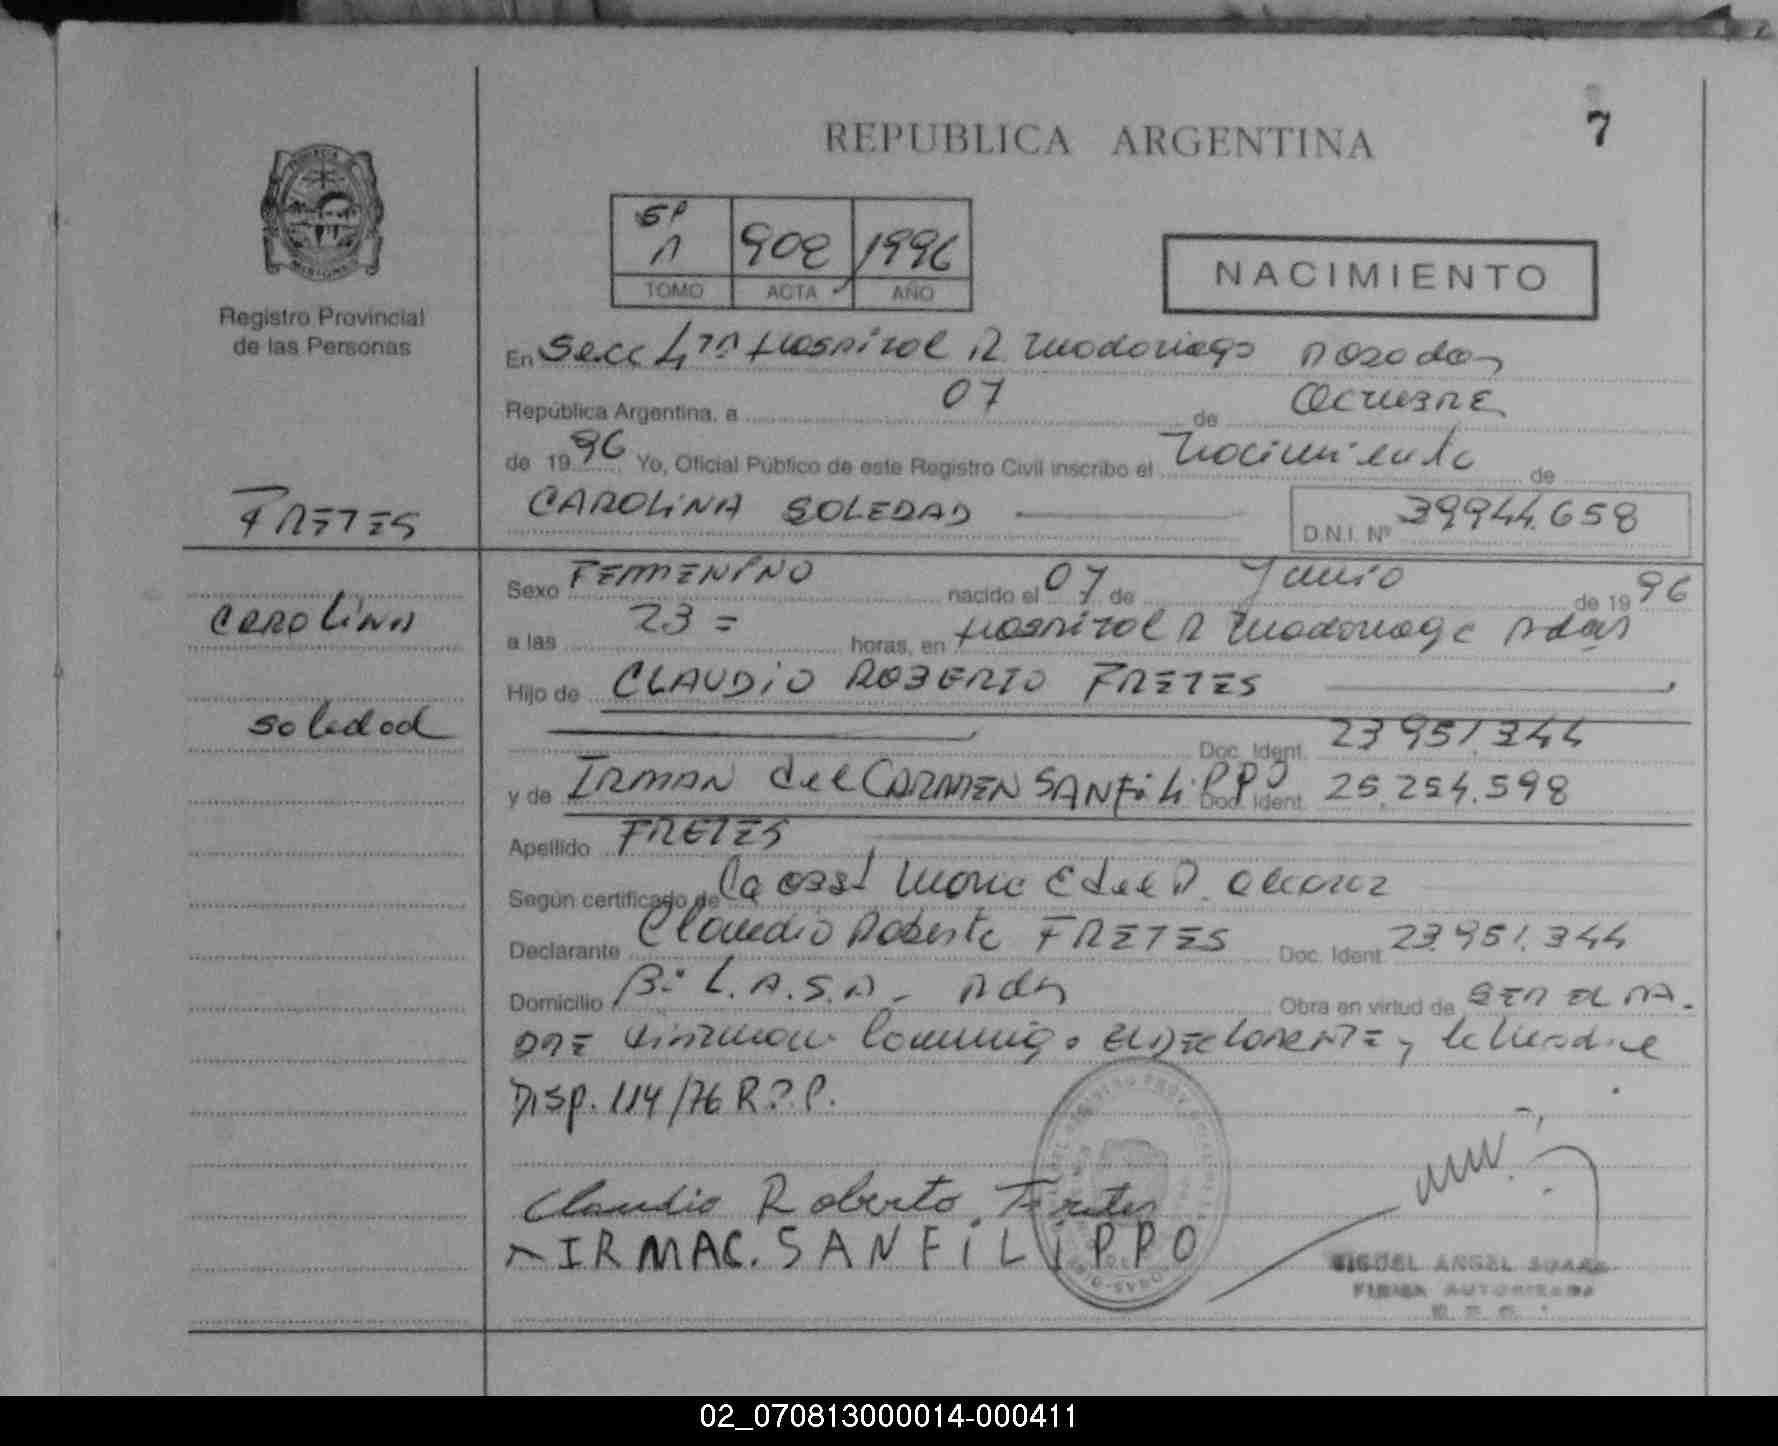 7
REPUBLICA ARGENTINA
5ª
A 902 1996
TOMO ACTA AÑO
NACIMIENTO
Registro Provincial
de las Personas
En Secc 4ta Hospital R. Madariaga Posadas
República Argentina, a 07 de Octubre
de 1996 Yo, Oficial Público de este Registro Civil inscribo el Nacimiento de
FRETES
CAROLINA SOLEDAD D.N.I. Nº 39944.658
Sexo FEMENINO nacido el 07 de Junio de 1996
CAROLINA
a las 23 = horas, en Hospital R Madariaga Pdas
Hijo de CLAUDIO ROBERTO FRETES
Soledad
Doc. Ident. 23.951.344
y de IRMAN del CARMEN SANFILIPPO Doc. Ident. 25.254.598
Apellido FRETES
Según certificado de la obst Maria E del R. Alcaraz
Declarante Claudio Roberto FRETES Doc. Ident. 23.951.344
Domicilio Bº L.A.S.A - Pdas Obra en virtud de SER EL PA-
DRE firman conmigo El DEclarante y la Madre
Disp. 114/76 R.P.P.
Claudio Roberto Fretes
IRMA C. SANFiLiPPO
MIGUEL ANGEL
FIRMA AUTORIZADA
02_070813000014-000411